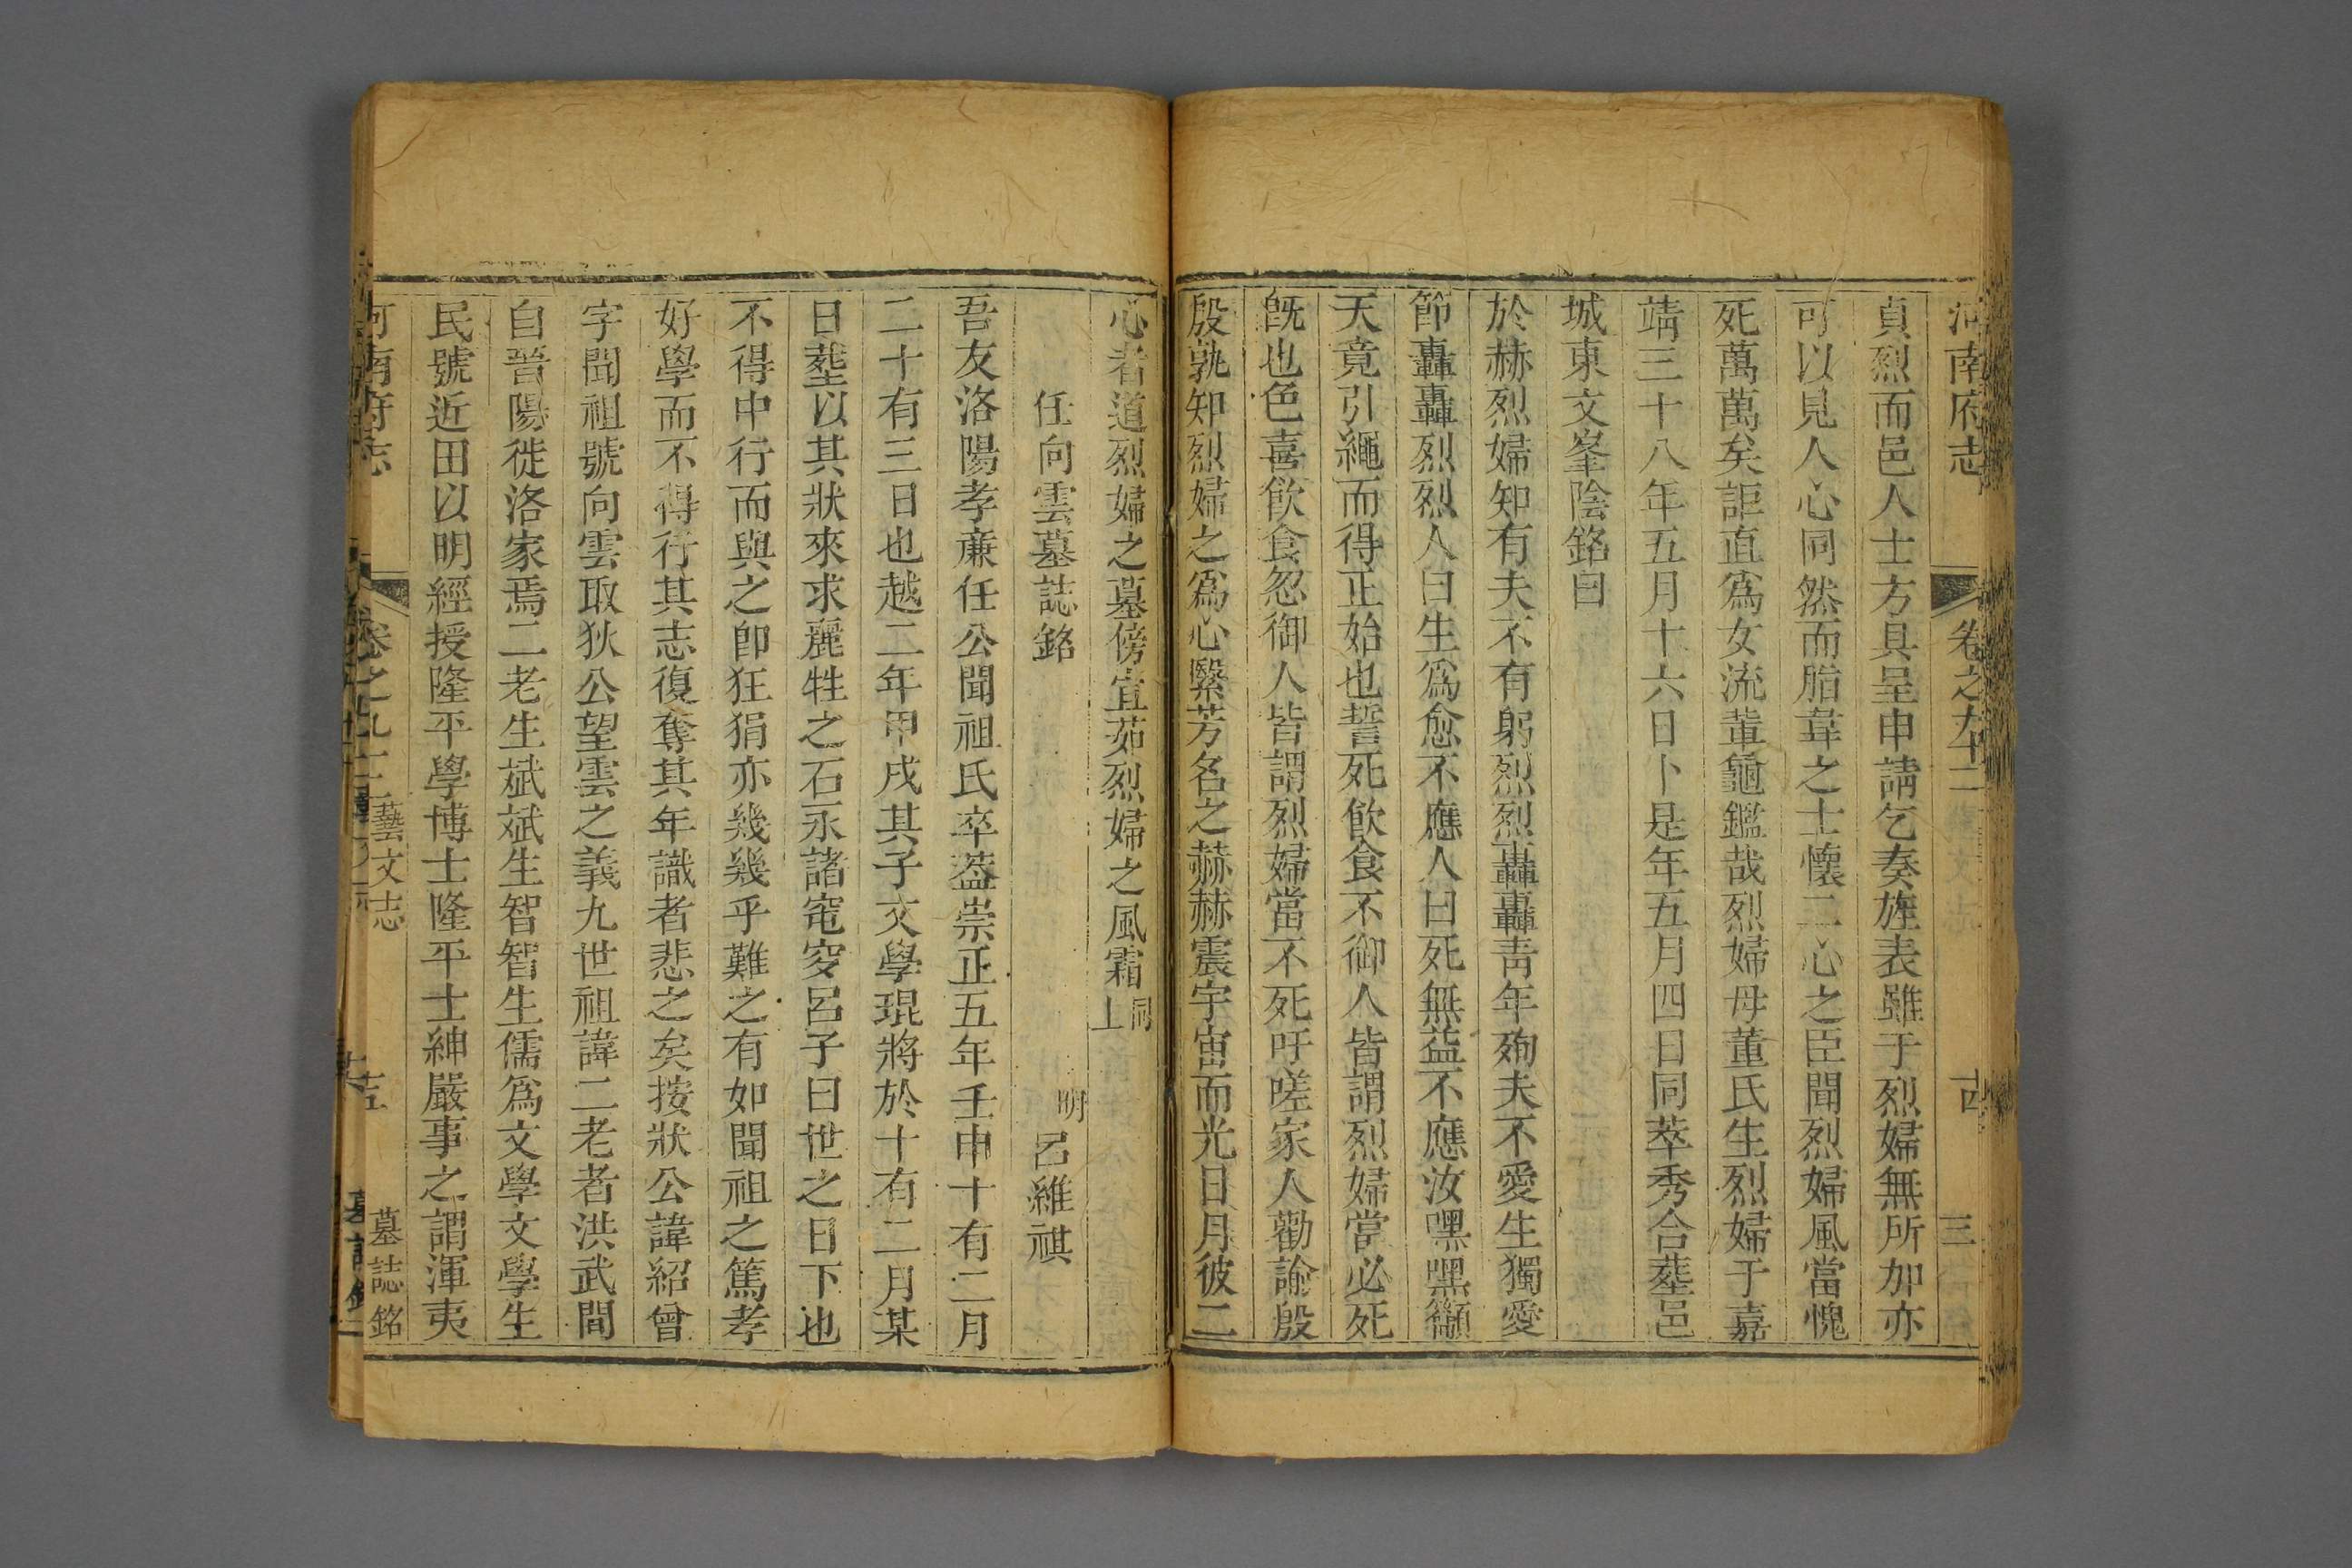 河南府志 卷之九十二 三
貞烈而邑人士方具呈申請乞奏旌表雖于烈婦無所加亦
可以見人心同然而脂韋之士懷二心之臣聞烈婦風當愧
死萬萬矣詎直爲女流輩龜鑑哉烈婦母董氏生烈婦于嘉
靖三十八年五月十六日卜是年五月四日同萃秀合塟邑
城東文峯陰銘曰
於赫烈婦知有夫不有躬烈烈轟轟靑年殉夫不愛生獨愛
節轟轟烈烈人曰生爲愈不應人曰死無益不應汝嘿嘿籲
天竟引繩而得正始也誓死飮食不御人皆謂烈婦當必死
旣也色喜飮食忽御人皆謂烈婦當不死吁嗟家人勸諭殷
殷孰知烈婦之爲心繄芳名之赫赫震宇宙而光日月彼二
心者道烈婦之墓傍宜茹烈婦之風霜同上
任向雲墓誌銘 明呂維祺
吾友洛陽孝亷任公聞祖氏卒葢崇正五年壬申十有二月
二十有三日也越二年甲戌其子文學琨將於十有二月某
日塟以其狀來求麗牲之石永諸窀穸呂子曰世之日下也
不得中行而與之卽狂狷亦幾幾乎難之有如聞祖之篤孝
好學而不得行其志復奪其年識者悲之矣按狀公諱紹曾
字聞祖號向雲取狄公望雲之義九世祖諱二老者洪武間
自晉陽徙洛家焉二老生斌斌生智智生儒爲文學文學生
民號近田以明經授隆平學博士隆平士紳嚴事之謂渾夷
河南府志 卷之九十二 藝文志 十五 墓誌銘